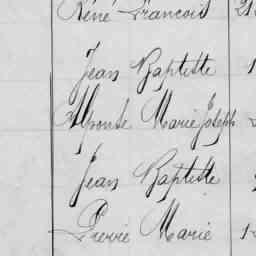 René François 21
Jean Baptiste 1
Alponse Marie Joseph
Jean Baptiste
Pierre Marie 1